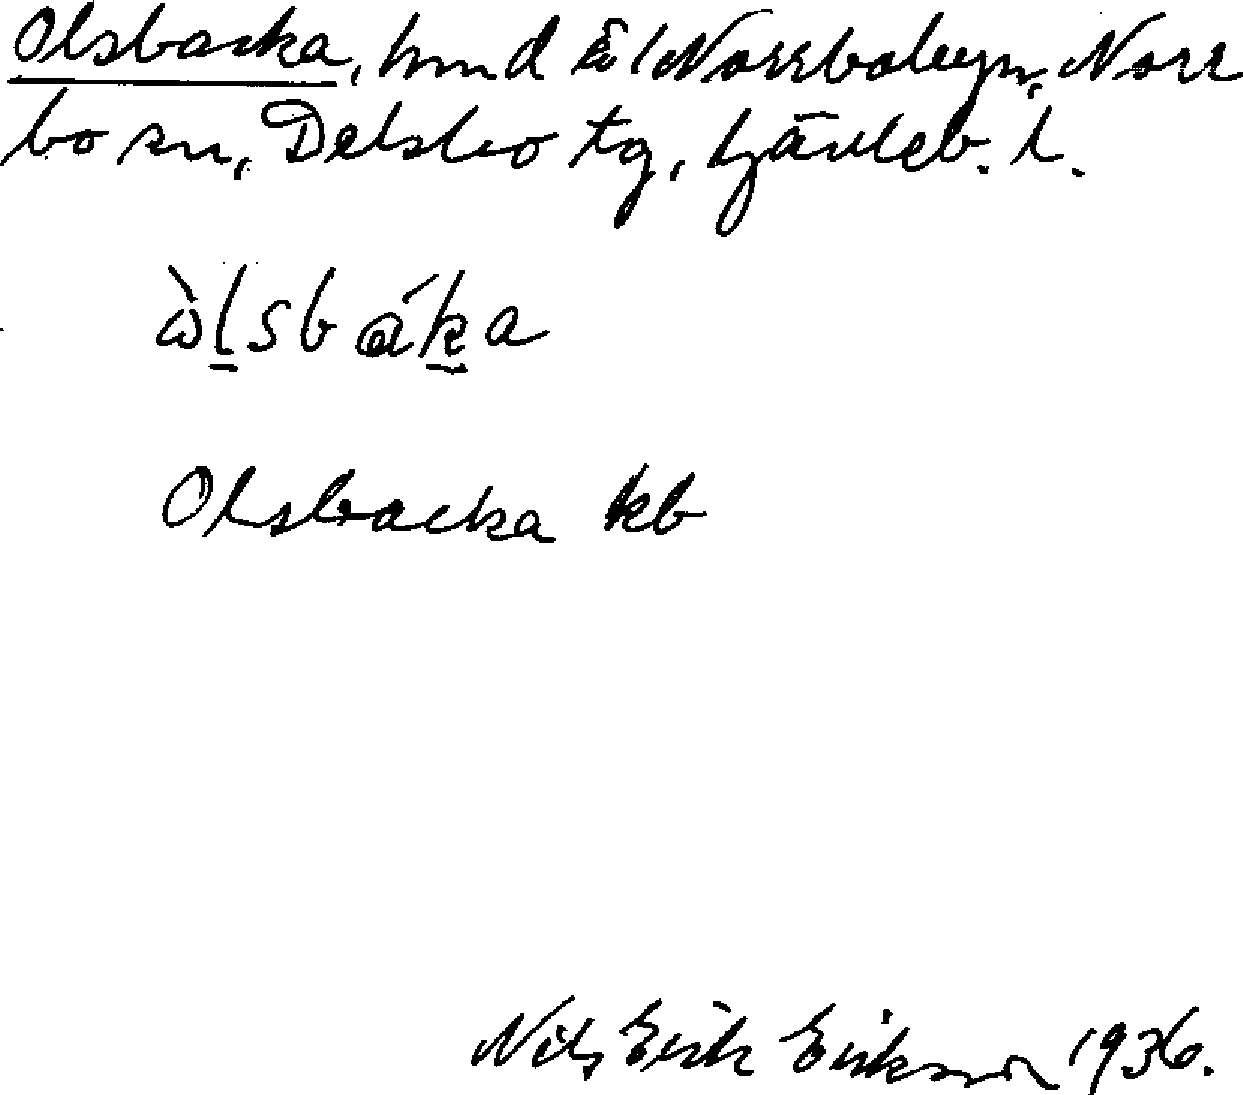 Olsbacka, hmd i Norrbobyn, Norr
bo sn, Delsbo tg, Gävleb. l.
ὼl̠sbák̠a
Olsbacka kb
Nils Erik Eriksson 1936.